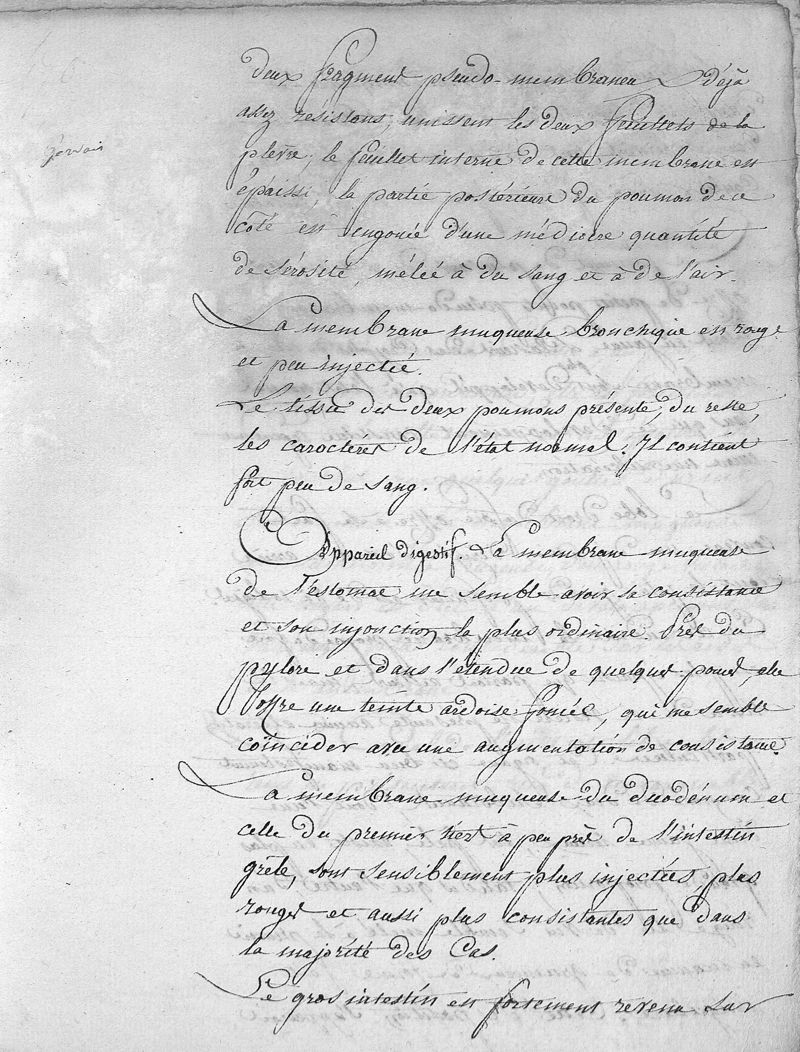 deux fragments pseudo-membraneux déjà
assez résistans, unissent les deux feuillets de la
plevre, le feuillet interne de cette membrane est
épaissi, la partie postérieure du poumon de ce
coté est engouée d'une médiocre quantité
de sérosité, mélée à du sang et à de l'air.
La membrane muqueuse bronchique est rouge
et peu injectée.
Le tissu des deux poumons présente, du reste,
les caractéres de l'état normal. Il contient
fort peu de sang.
Appareil digestif. La membrane muqueuse
de l'estomac me semble avoir sa consistance
et son injection la plus ordinaire Près du
pylore et dans l'étendue de quelques pouces, elle
offre une teinte ardoise foncée, qui me semble
coïncider avec une augmentation de consistance.
La membrane muqueuse du duodénum et
celle du premier tiers à peu près de l'intestin
grêle, sont sensiblement plus injectées, plus
rouges et aussi plus consistantes que dans
la majorité des Cas.
Le gros intestin est fortement revenu sur